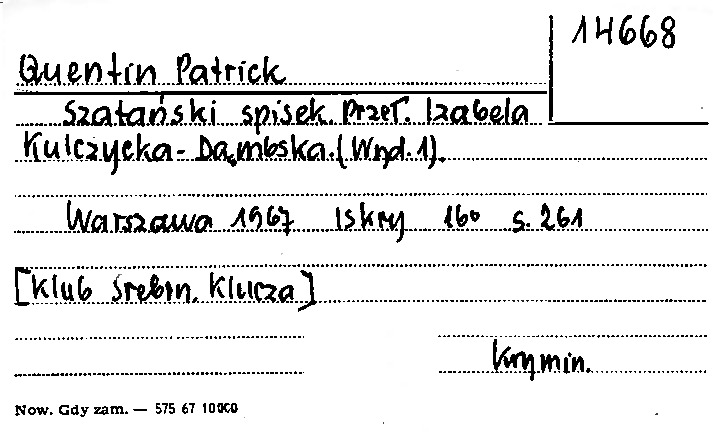 14668
Quentin Patrick
Szatański spisek. Przeł. Izabela
Kulczycka-Dąmbska. (Wyd. 1).
Warszawa 1967 Iskry 16° s. 261
[Klub Srebrn. Klucza]
Krymin.
Now. Gdy zam. — 575 67 10000